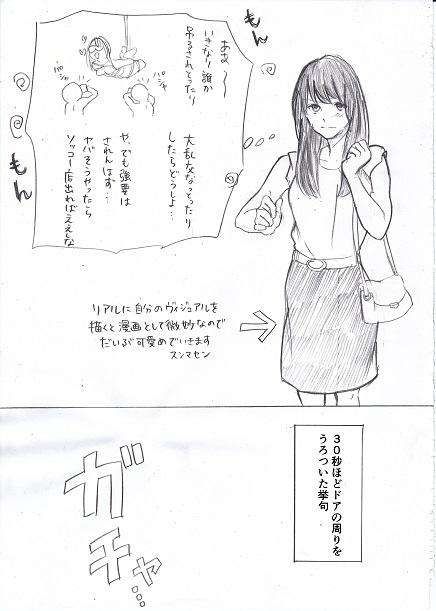 もん
ああ〜
いきなり誰か
吊るされとったり
パシャ
パシャ
大乱交なっとったり
したらどうしよ…
や、でも強要は
されんはず…
ヤバそうやったら
ソッコー店出ればええしな
もん
リアルに自分のヴィジュアルを
描くと漫画として微妙なので
だいぶ可愛めでいきます
スンマセン
30秒ほどドアの周りを
うろついた挙句
ガチャ…